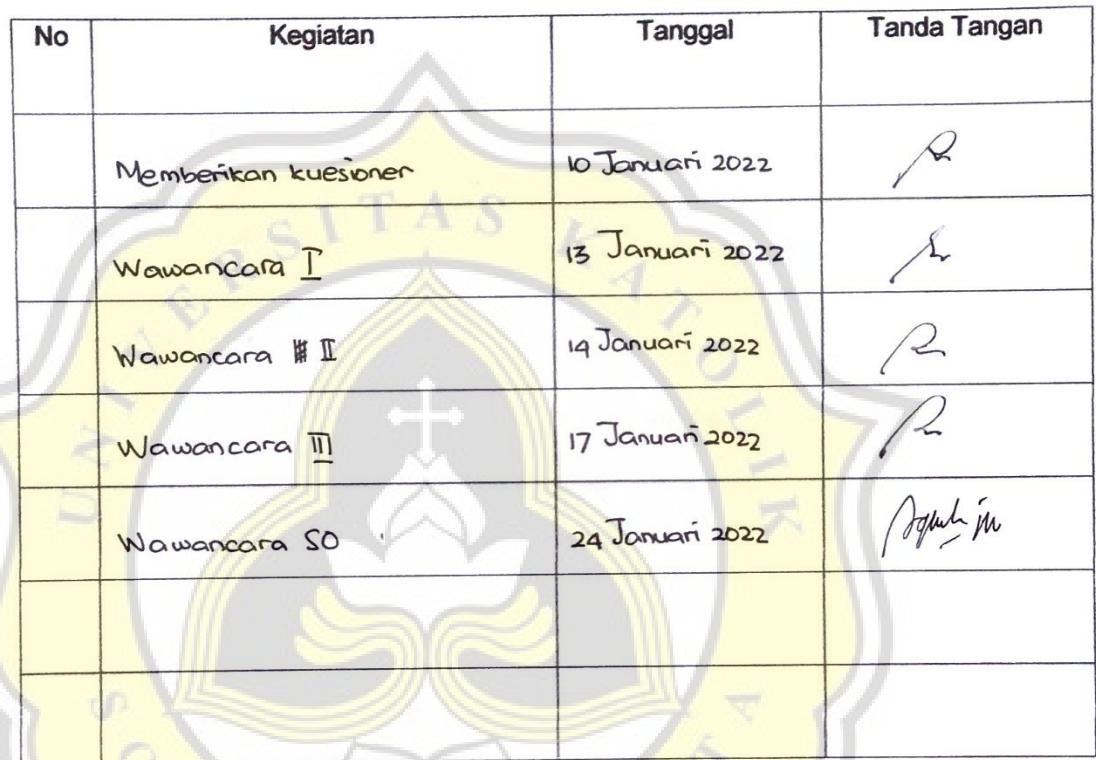 No Kegiatan Tanggal Tanda Tangan
Memberikan kuesioner 10 Januari 2022
Wawancara I 13 Januari 2022
Wawancara II 14 Januari 2022
Wawancara III 17 Januari 2022
Wawancara SO 24 Januari 2022
UNIVERSITAS KATOLIK